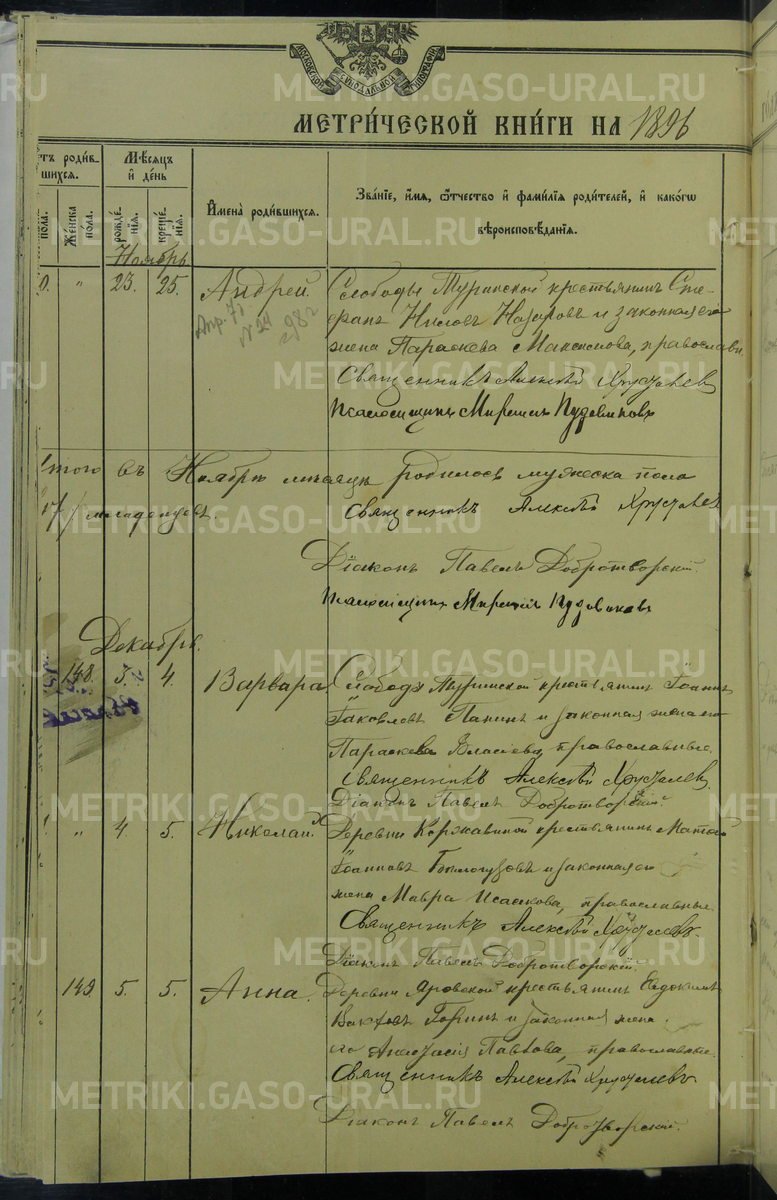 МЕТРИ́ЧЕСКОЙ КНИ́ГИ НА 1896
тъ роди́в-
шихся.
Мѣ́сяцъ
и҆ де́нь
И҆мена̀ роди́вшихся.
Зва́нїе, и҆́мя, ѻ҆́тчество и҆ фами́лїя роди́телей, и҆ какогѡ
вѣроисповѣ́данїя.
пола.
Же́нска
пола.
рожде́-
нїя.
креще́-
нїя.
Ноябрь
" 23. 25. Андрей. Слободы Туринской крестьянинъ Сте-
фанъ Ниловъ Назаровъ и законная его
жена Параскева Максимова, православн
Священникъ Алексѣй Хрусталев
Псаломщикъ
Итого въ Ноябрѣ мѣсяцѣ родилось мужеска пола
17 младенцевъ.
Священникъ Алексѣй Хрусталев
Дїаконъ Павелъ Добротворскій.
Псаломщикъ
Декабрь.
148. 3. 4. Варвара Слободы Туринской крестьянинъ Іоаннъ
Іаковлевъ Панинъ и законная жена его
Параскева Власіева, православные.
Священникъ Алексѣй Хрусталев
Дїаконъ Павелъ Добротворскій.
" 4. 5. Николай. Деревни Коржавиной крестьянинъ
Іоанновъ и законная его
жена Мавра Исаакова, православные.
Священникъ Алексѣй Хрусталевъ.
Дїаконъ Павелъ Добротворскій.
149. 5. 5. Анна. Деревни Яровской крестьянинъ Евдокимъ
Горинъ и законная жена
его Анастасія Павлова, православные.
Священникъ Алексѣй Хрусталевъ
Дїаконъ Павелъ Добротворскій.
METRIKI.GASO-URAL.RU